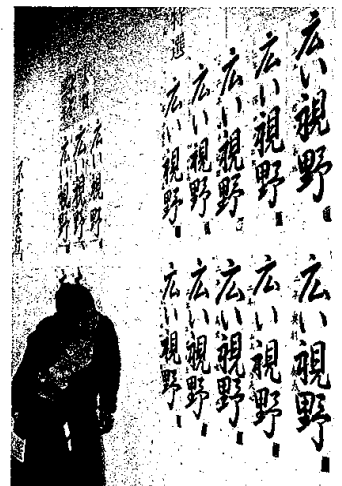 広い視野
広い視野
広い視野
広い視野
広い視野
特選
広い視野
広い視野
広い視野
広い視野
広い視野
広い視野
広い視野
不言実行